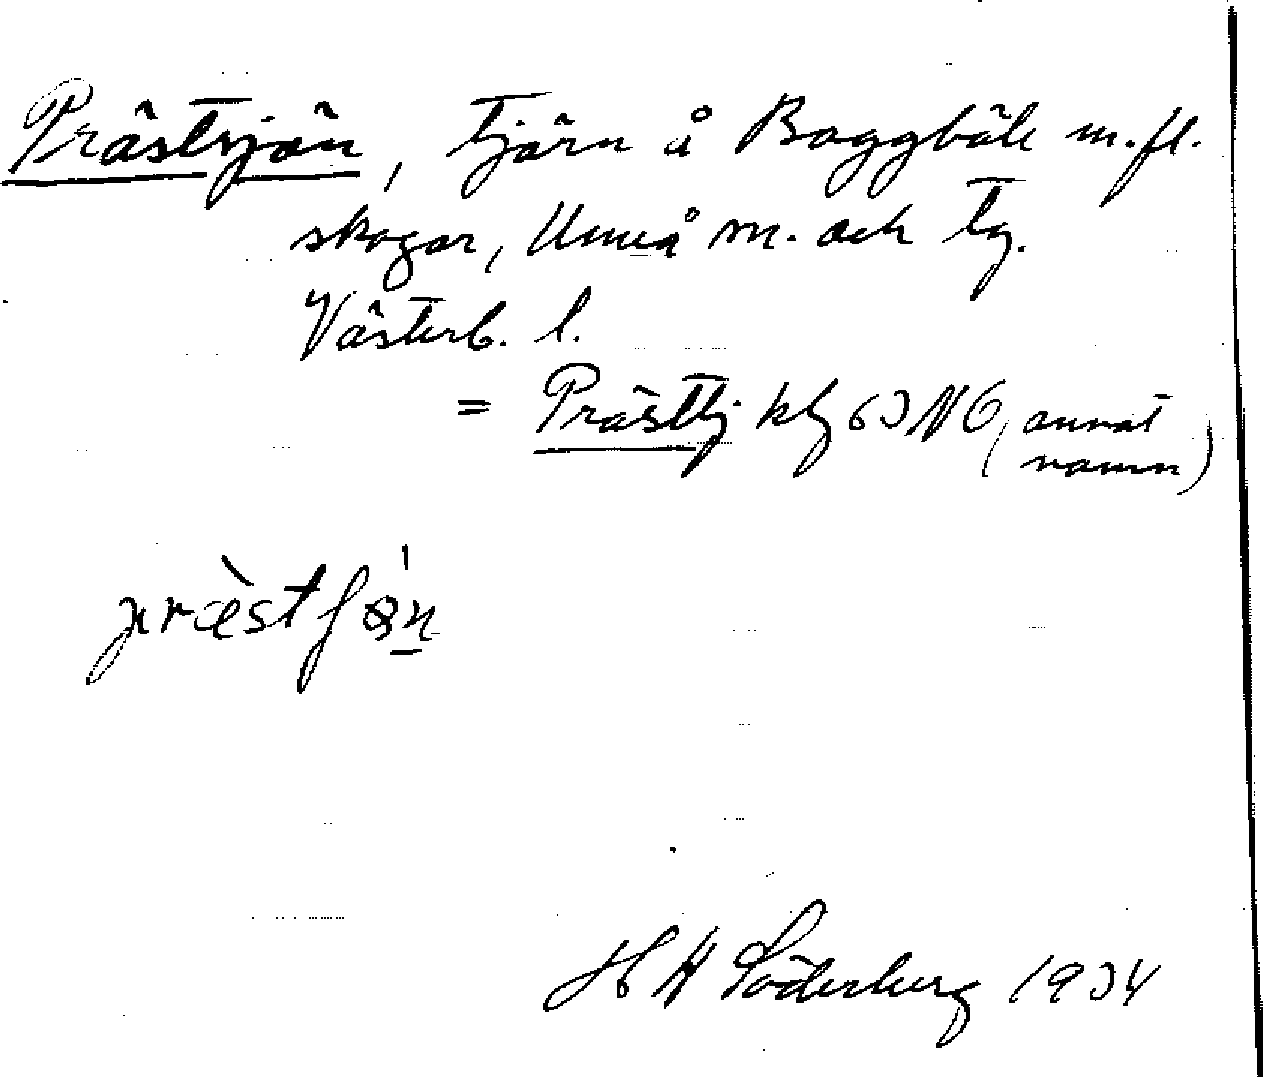 Prästsjön, tjärn å Baggböle m.fl.
skogar, Umeå sn. och tg.
Västerb. l.
= Prästtj. kbl 63 NO (annat
namn)
H H Söderberg 1934